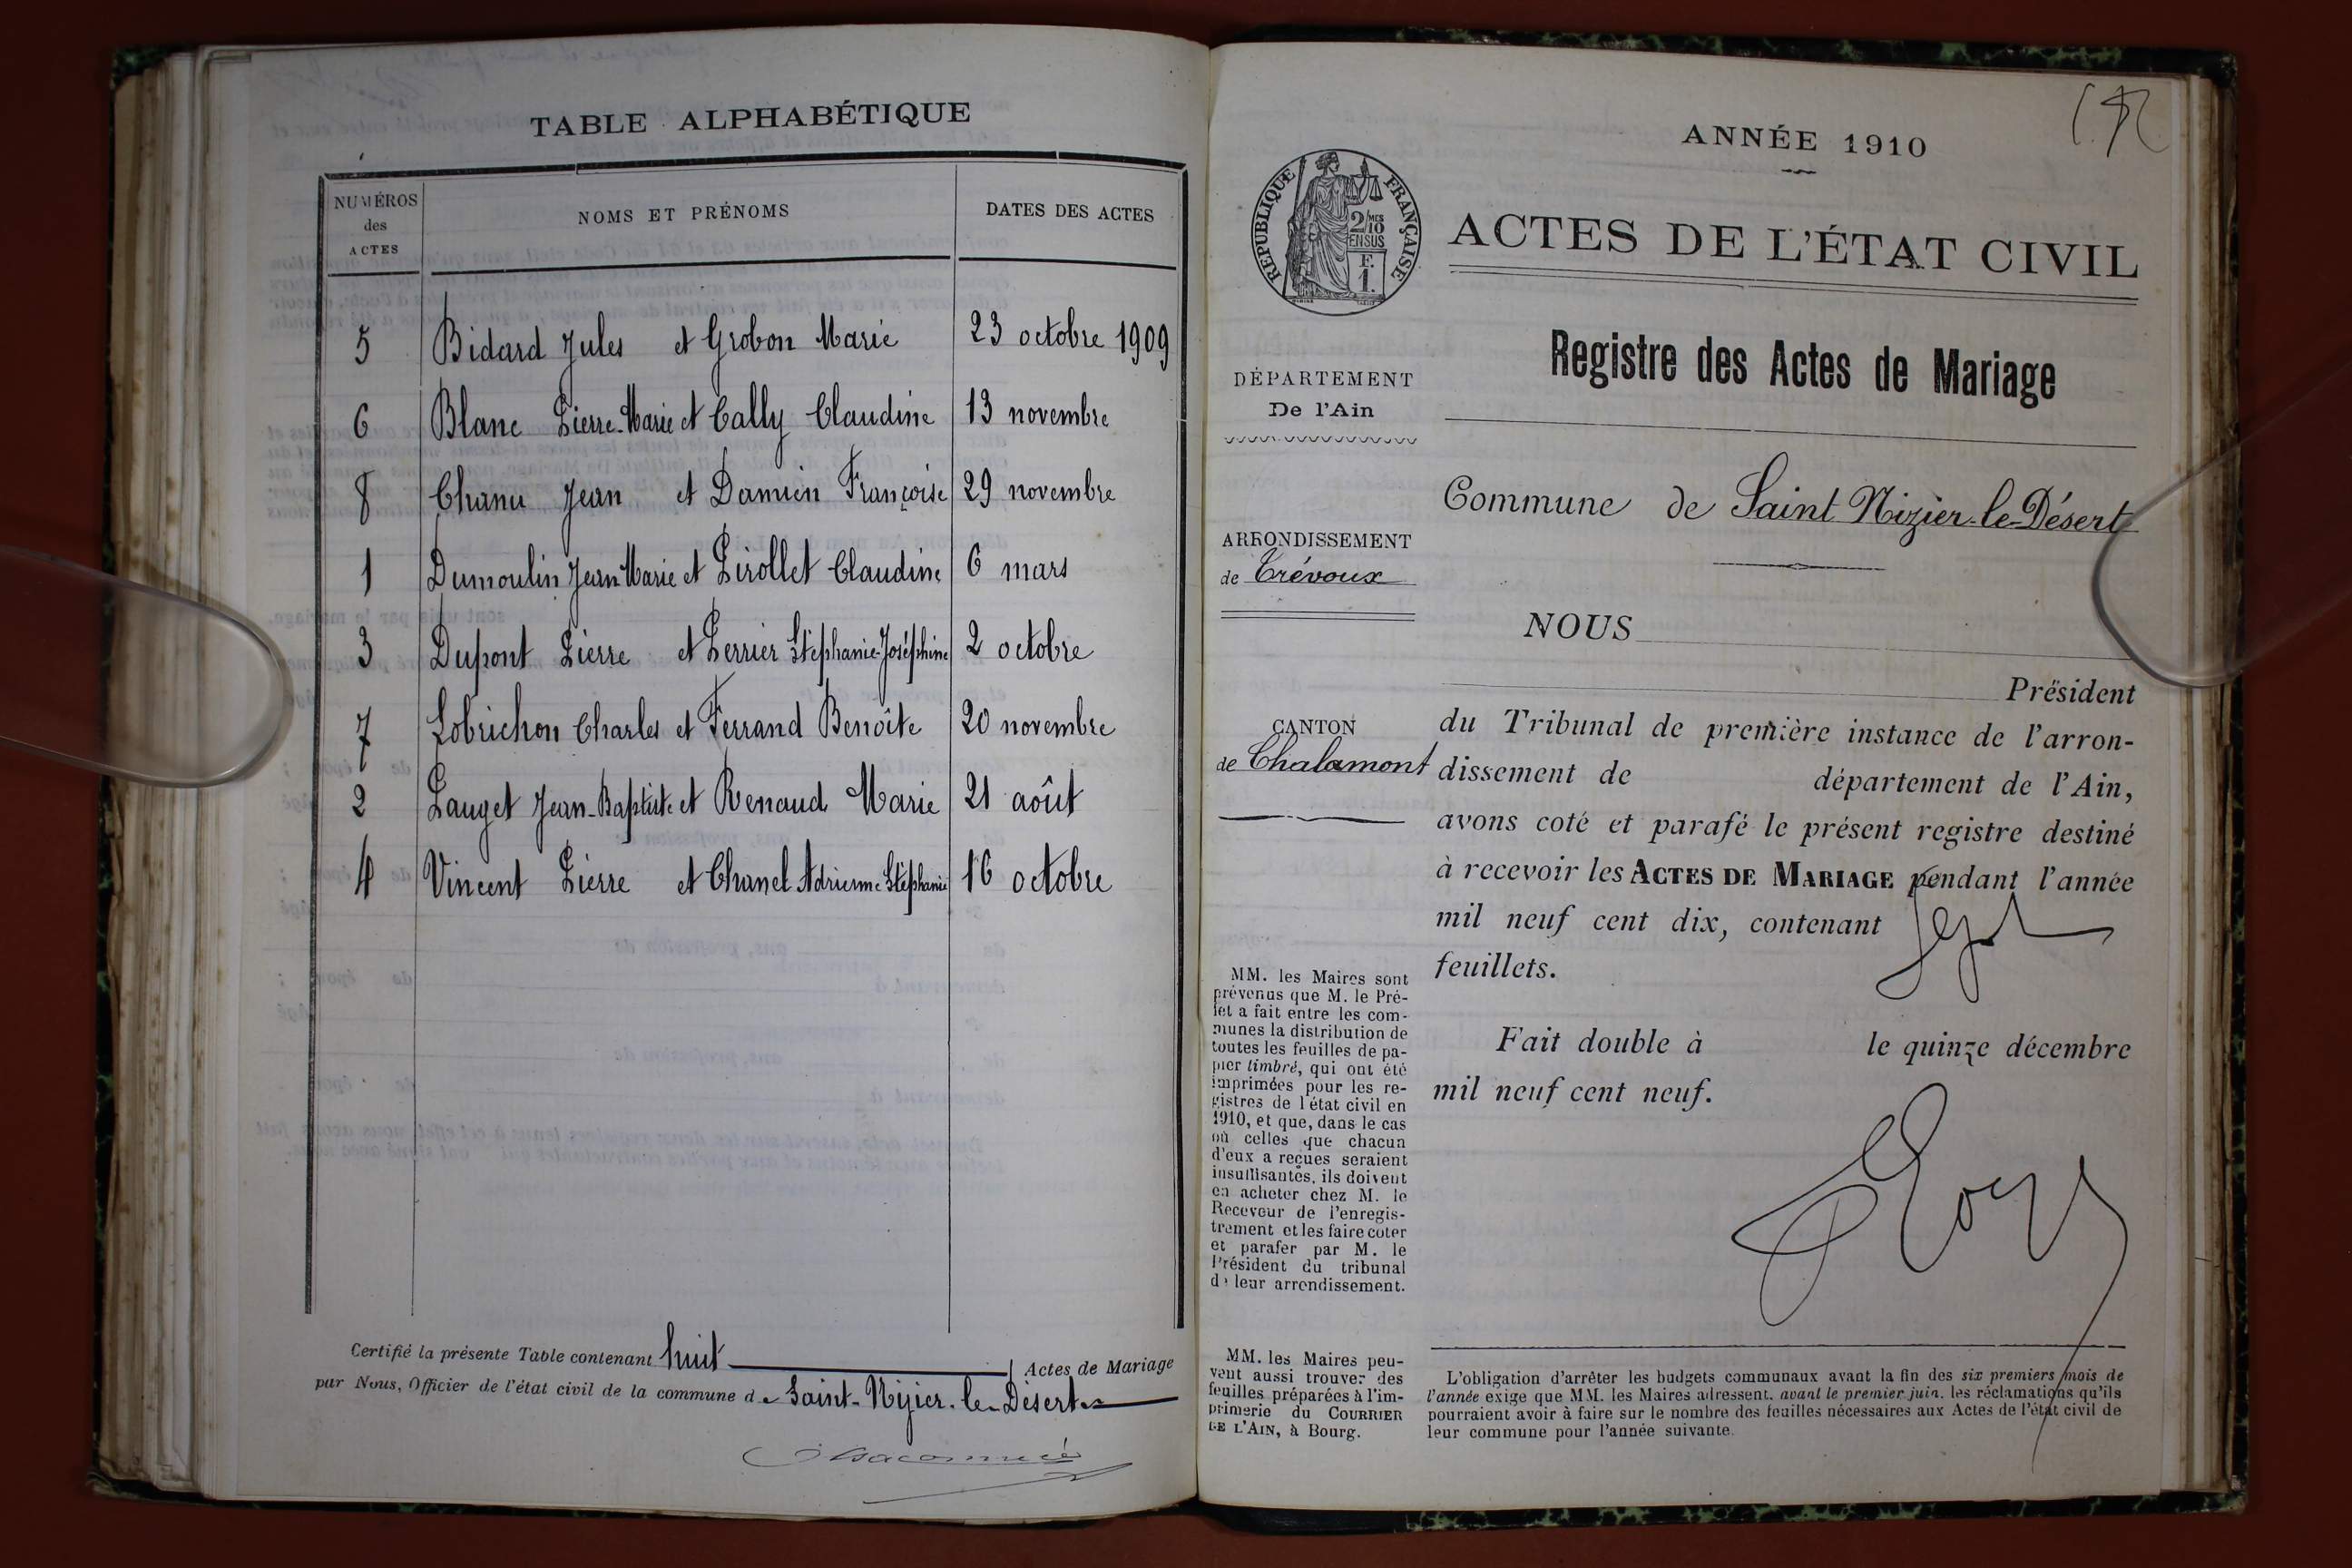 TABLE ALPHABÉTIQUE
NUMÉROS des ACTES
NOMS ET PRÉNOMS
DATES DES ACTES
5 Bidard Jules et Grobon Marie 23 octobre 1909
6 Blanc Pierre-Marie et Cally Claudine 13 novembre
8 Chanu Jean et Damien Françoise 29 novembre
1 Dumoulin Jean Marie et Pirollet Claudine 6 mars
3 Dupont Pierre et Perrier Stéphanie-Joséphine 2 octobre
7 Lobrichon Charles et Ferrand Benoîte 20 novembre
2 Pauget Jean-Baptiste et Renaud Marie 21 août
4 Vincent Pierre et Chanel Adrienne Stéphanie 16 octobre
Certifié la présente Table contenant huit Actes de Mariage
par Nous, Officier de l'état civil de la commune de Saint-Nizier-le-Désert
ANNÉE 1910
RÉPUBLIQUE FRANÇAISE
2/10 MES
EN SUS
F.
1
ACTES DE L'ÉTAT CIVIL
Registre des Actes de Mariage
DÉPARTEMENT
De l'Ain
Commune de Saint Nizier-le-Désert
ARRONDISSEMENT
de Trévoux
CANTON
de Chalamont
NOUS
Président
du Tribunal de première instance de l'arron-
dissement de département de l'Ain,
avons coté et parafé le présent registre destiné
à recevoir les ACTES DE MARIAGE pendant l'année
mil neuf cent dix, contenant
feuillets.
Fait double à le quinze décembre
mil neuf cent neuf.
MM. les Maires sont
prévenus que M. le Pré-
fet a fait entre les com-
munes la distribution de
toutes les feuilles de pa-
pier timbré, qui ont été
imprimées pour les re-
gistres de l'état civil en
1910, et que, dans le cas
où celles que chacun
d'eux a reçues seraient
insuffisantes, ils doivent
en acheter chez M. le
Receveur de l'enregis-
trement et les faire coter
et parafer par M. le
Président du tribunal
de leur arrondissement.
MM. les Maires peu-
vent aussi trouver des
feuilles préparées à l'im-
primerie du COURRIER
DE L'AIN, à Bourg.
L'obligation d'arrêter les budgets communaux avant la fin des six premiers mois de
l'année exige que MM. les Maires adressent, avant le premier juin, les réclamations qu'ils
pourraient avoir à faire sur le nombre des feuilles nécessaires aux Actes de l'état civil de
leur commune pour l'année suivante.